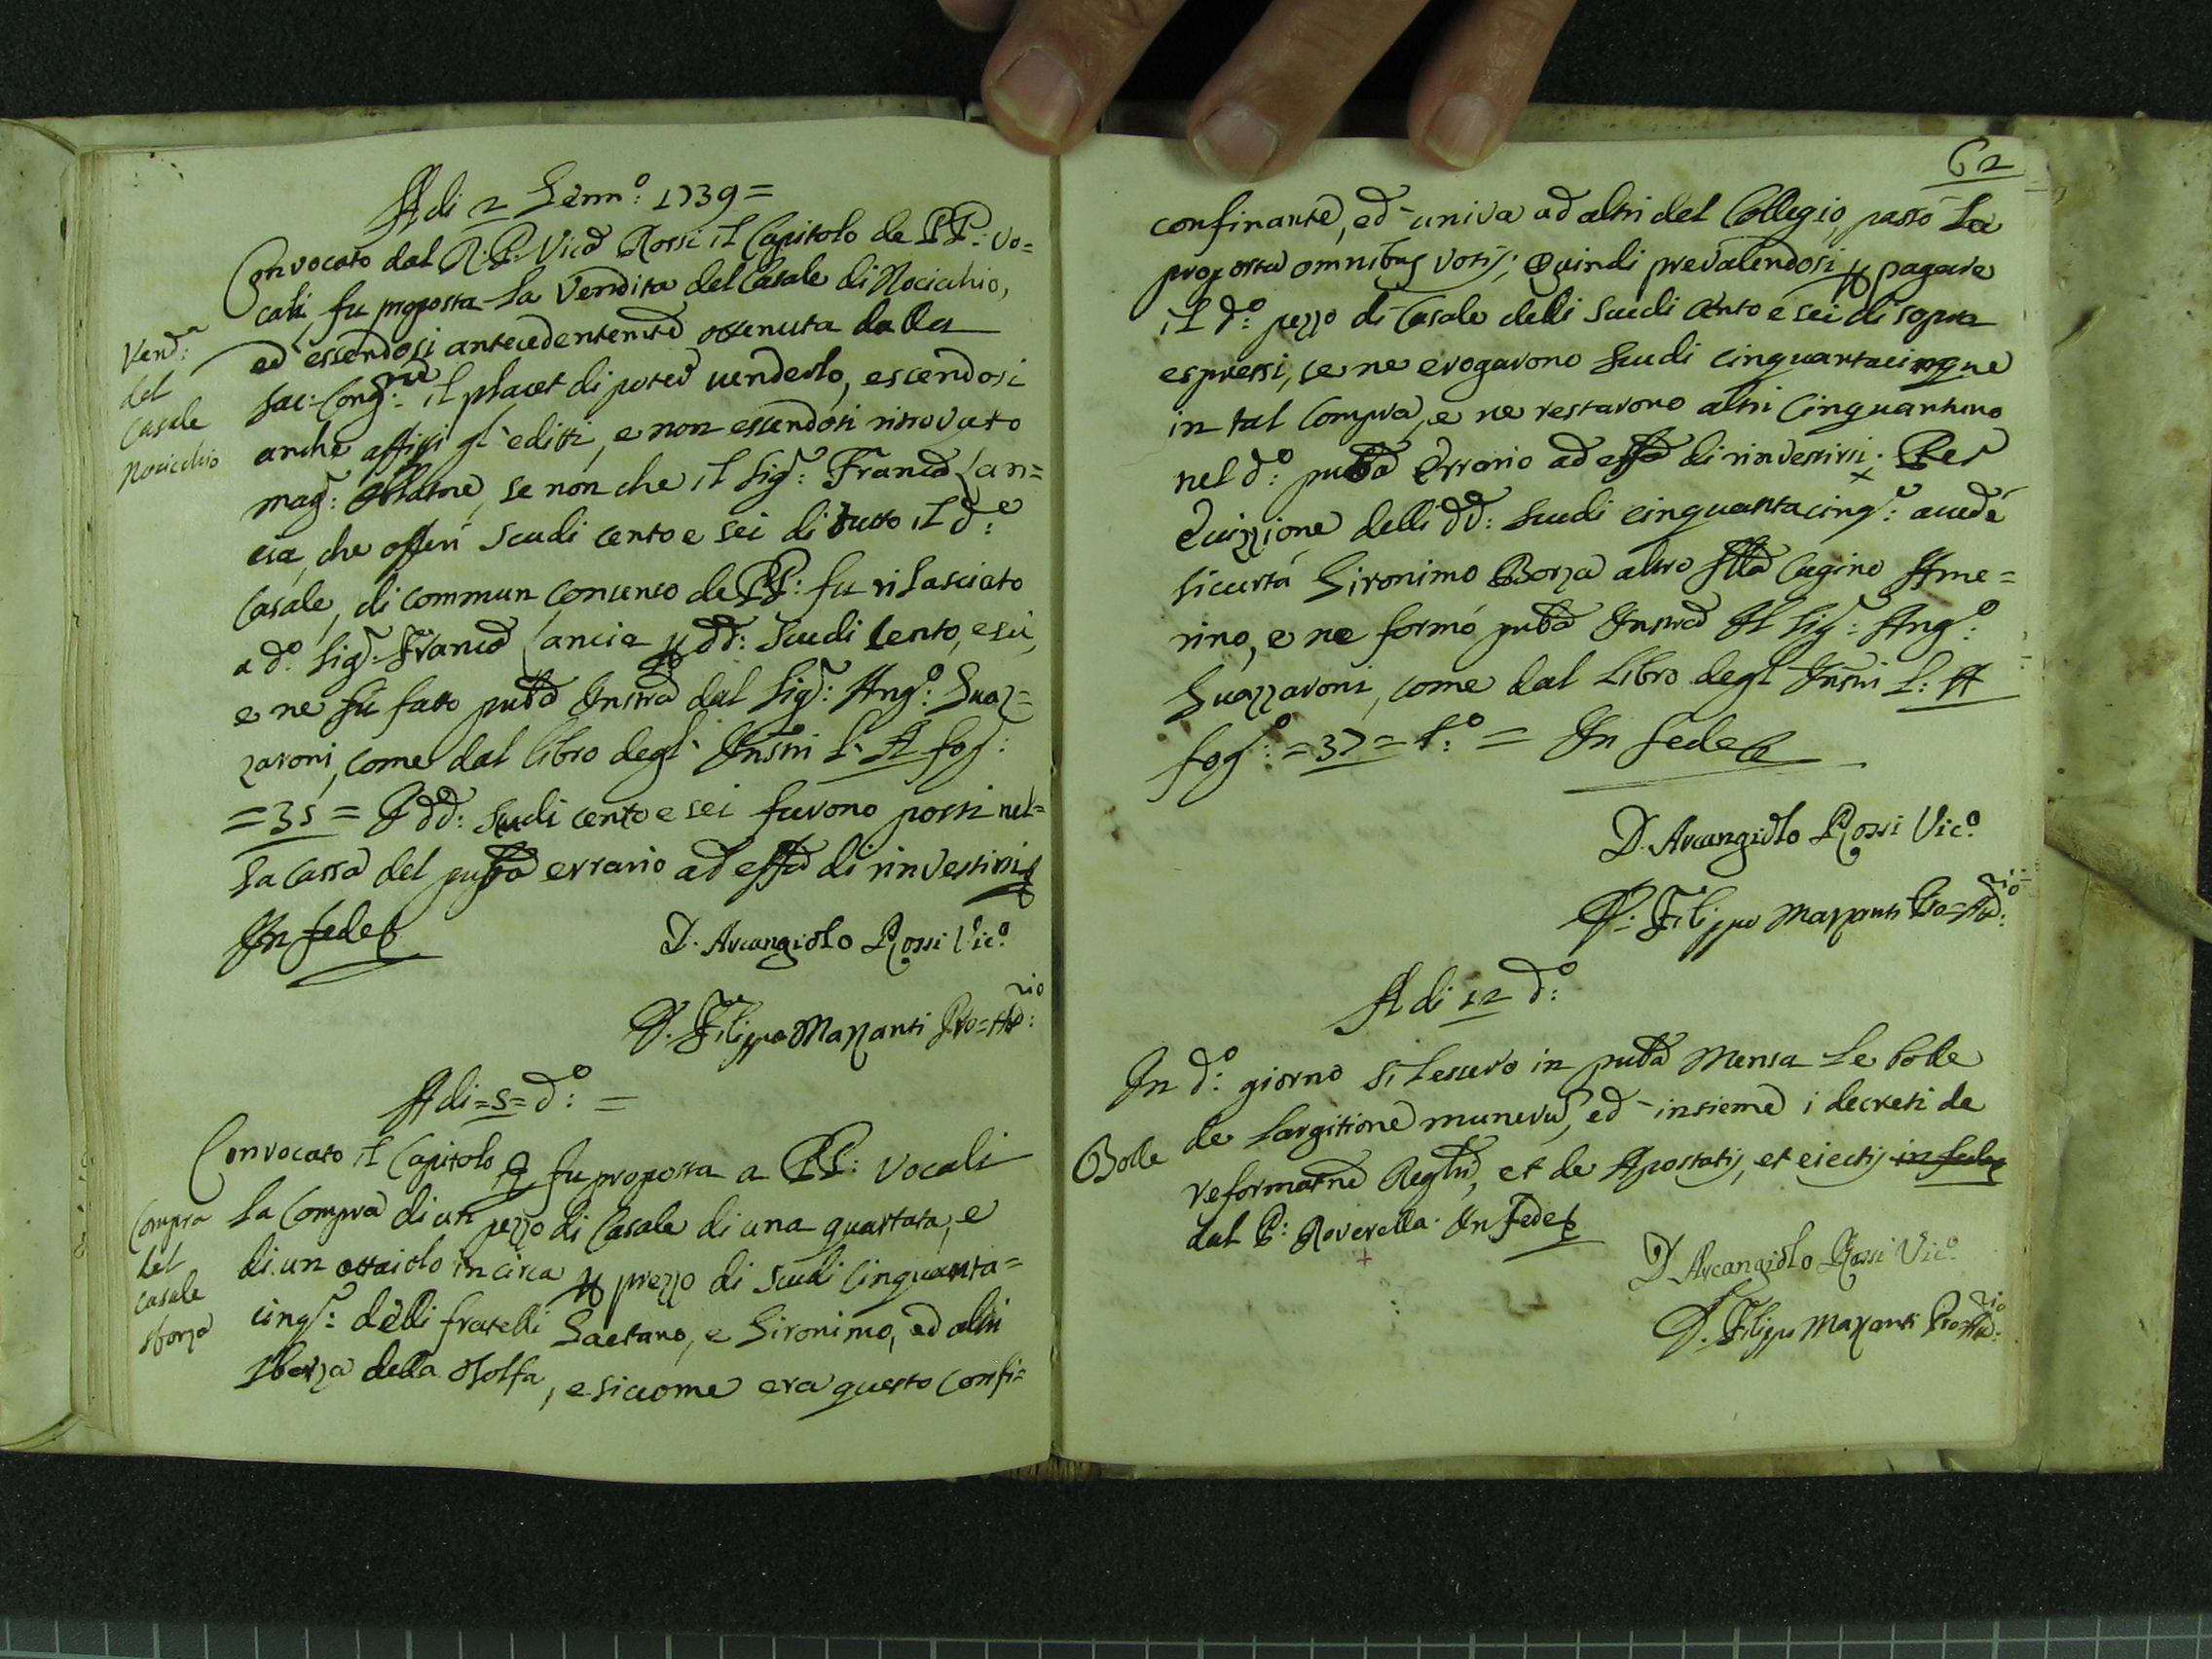 Adi 2 Genn:o 1739 =
Convocato dal R. P. Vico Rossi il Capitolo de PP: vo=
cali, fu proposta la Vendita del Casale di Nocicchio,
Vend:a
del
Casale
Nocicchio
ed essendosi antecedentemte ottenuta dalla
Sac: Cong:ne il placet di poter venderlo, escendosi
anche affissi gl'editti, e non essendosi ritrovato
mag: Oblatore, se non che il Sig:r Franco Lan=
cia, che offerì scudi cento e sei di tutto il d:o
Casale, di commun consenso de PP: fu rilasciato
a d:o Sig:r Franco Lancia p dd: Scudi Cento, e sei,
e ne fù fatto pubco Instro dal Sig:r Ang:o Guaz=
zaroni, come dal libro degl' Instri L: A fog:
= 35 = I dd: Scudi cento e sei furono posti nel=
la cassa del pubco errario ad effo di rinvestirsi
In fede
D. Arcangiolo Rossi Vic:o
D. Filippo Mazzanti Pro=Att:rio
Adi = 5 = d:o =
Convocato il Capitolo fu proposta a PP: Vocali
Compra
del
casale
sforza
la Compra di un pezzo di Casale di una quartata, e
di un ottaiolo in circa p prezzo di scudi cinquanta=
cinq:e delli fratelli Gaetano, e Gironimo, ed altri
Sborza della Tolfa, e siccome era questo confi=
62
confinante, ed univa ad altri del Collegio, passò la
proposta omnibus votis; Quindi prevalendosi p pagare
il d:o pezzo di Casale delli Scudi cento e sei di sopra
espressi, se ne erogarono Scudi cinquantacinque
in tal Compra, e ne restarono altri Cinquantuno
nel d:o pubco Errario ad effo di rinvestirsi. Per
Evizzione delli dd: Scudi cinquantacinq:e accede
sicurtà Gironimo Borza altro Cugino Ame=
rino, e ne formò pubco Instro Il Sig:r Ang:o
Guazzaroni, come dal Libro degl' Instri L: A
fog:o = 37 = t:o = In fede
D. Arcangiolo Rossi Vic:o
D. Filippo Mazzanti Pro=Att:rio
Adi 12 d:o
In d:o giorno si lessero in pubca Mensa le bolle
Bolle
de largitione munerum, ed insieme i decreti de
reformatne Reglrium, et de Apostatis, et eiectis in fede
dal P: Roverella. In Fede
D. Arcangiolo Rossi Vic:o
D. Filippo Mazzanti Pro=Att:rio